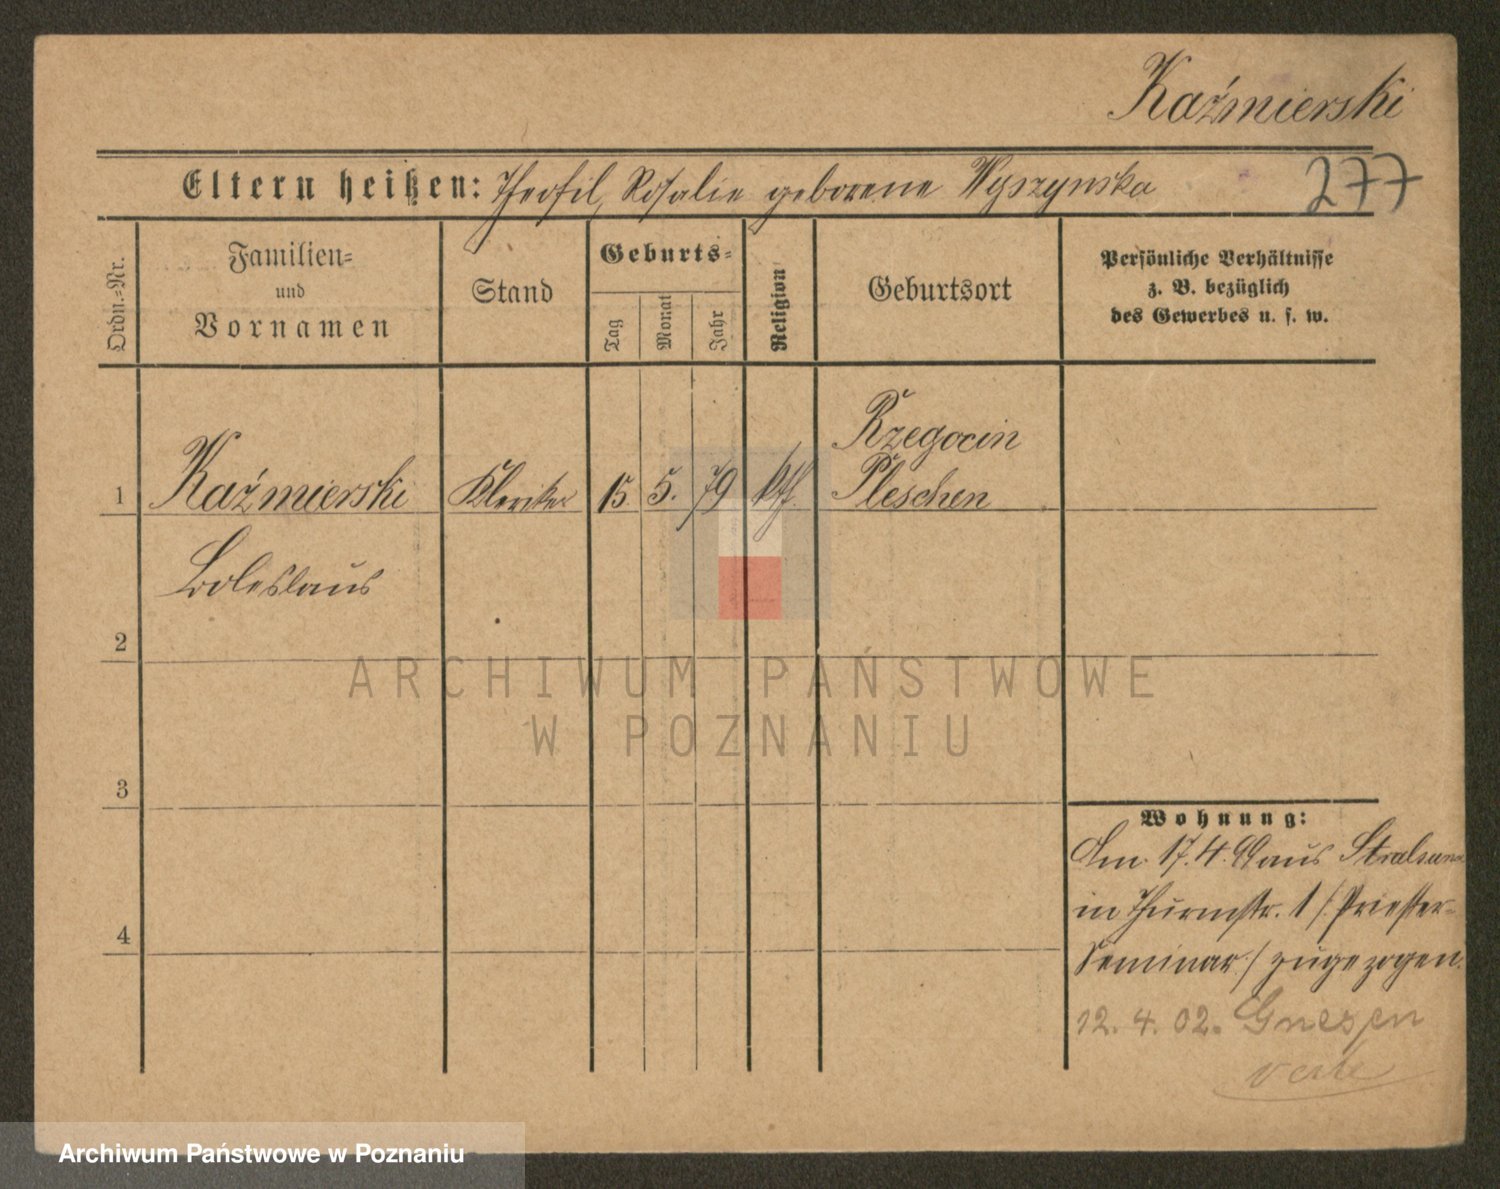 Kaźmierski
Eltern heißen: Theofil, Rosalie geborene Wyszynska
277
Ordn.-Nr.
Familien-
und
Vornamen
Stand
Geburts-
Tag
Monat
Jahr
Religion
Geburtsort
Persönliche Verhältnisse
z. B. bezüglich
des Gewerbes u. s. w.
Rzegocin
1 Kaźmierski Kleriker 15. 5. 79 kth. Pleschen
Boleslaus
2
ARCHIWUM PAŃSTWOWE
W POZNANIU
3
Wohnung:
Am 17.4.99 aus Stralsund
in Thurmstr. 1 /: Priester-
4
Seminar :/ zugezogen.
12. 4. 02. Gnesen
Archiwum Państwowe w Poznaniu